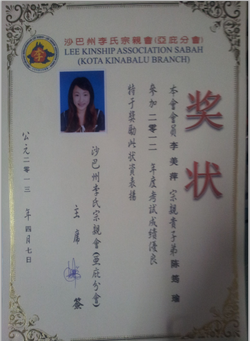 沙巴州李氏宗親會(亞庇分會)
LEE KINSHIP ASSOCIATION SABAH
(KOTA KINABALU BRANCH)
奖状
本會會員李美萍宗親貴子弟陳筠瑜
參加二零一二年度考試成績優良
特予獎勵此狀資表揚
沙巴州李氏宗親會(亞庇分會)
主席 签
公元二零一三年四月七日